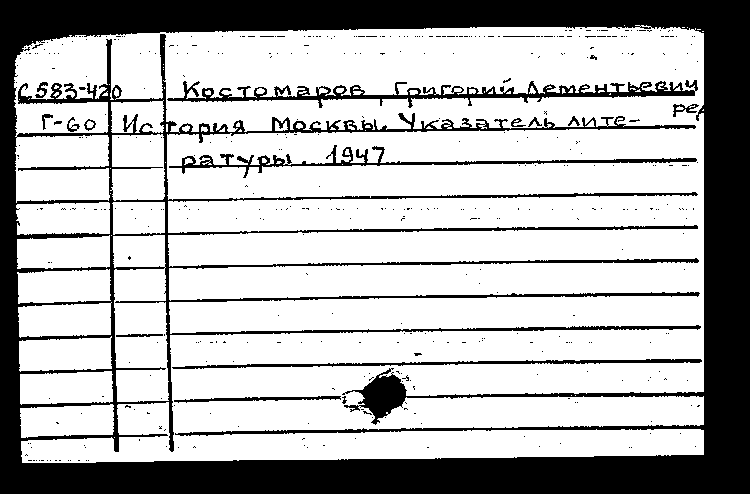 С583-420 Костомаров, Григорий Дементьевич
ред
Г-60 История Москвы. Указатель лите-
ратуры. 1947